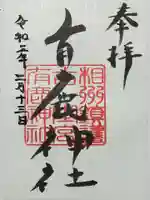 奉拝
有鹿神社
相州
有鹿神社
令和二年
二月十三日